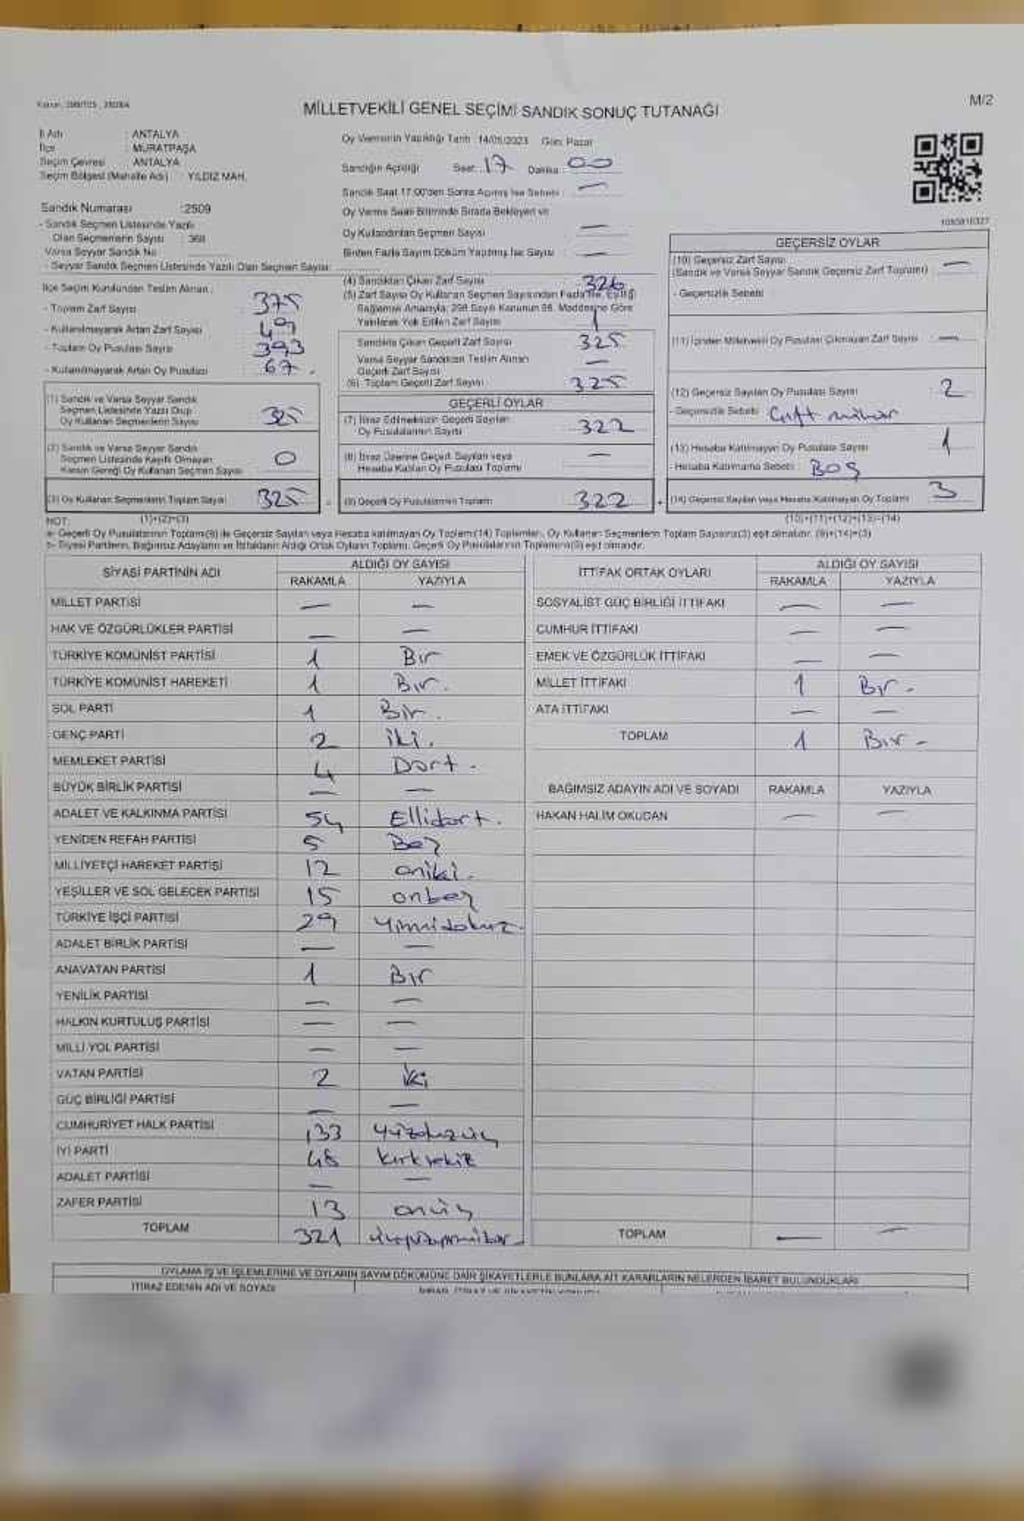 MİLLETVEKİLİ GENEL SEÇİMİ SANDIK SONUÇ TUTANAĞI
M/2
İl Adı : ANTALYA
İlçe : MURATPAŞA
Seçim Çevresi : ANTALYA
Seçim Bölgesi (Mahalle Adı) : YILDIZ MAH.
Sandık Numarası :2509
- Sandık Seçmen Listesinde Yazılı
Olan Seçmenlerin Sayısı : 368
Varsa Seyyar Sandık No
- Seyyar Sandık Seçmen Listesinde Yazılı Olan Seçmen Sayısı:
İlçe Seçim Kurulundan Teslim Alınan :
- Toplam Zarf Sayısı 375
- Kullanılmayarak Artan Zarf Sayısı 49
- Toplam Oy Pusulası Sayısı 393
- Kullanılmayarak Artan Oy Pusulası 67.
(1) Sandık ve Varsa Seyyar Sandık
Seçmen Listesinde Yazılı Olup
Oy Kullanan Seçmenlerin Sayısı 325
(2) Sandık ve Varsa Seyyar Sandık
Seçmen Listesinde Kayıtlı Olmayan
Kanun Gereği Oy Kullanan Seçmen Sayısı 0
(3) Oy Kullanan Seçmenlerin Toplam Sayısı 325
Oy Vermenin Yapıldığı Tarih :14/05/2023 Gün: Pazar
Sandığın Açıldığı Saat: 17 Dakika: 00
Sandık Saat 17:00'den Sonra Açılmış İse Sebebi : —
Oy Verme Saati Bitiminde Sırada Bekleyen ve
Oy Kullandırılan Seçmen Sayısı : —
Birden Fazla Sayım Döküm Yapılmış İse Sayısı : —
(4) Sandıktan Çıkan Zarf Sayısı 326
(5) Zarf Sayısı Oy Kullanan Seçmen Sayısından Fazla İse, Eşitliği
Sağlamak Amacıyla, 298 Sayılı Kanunun 98. Maddesine Göre
Yakılarak Yok Edilen Zarf Sayısı 1
Sandıkta Çıkan Geçerli Zarf Sayısı 325
Varsa Seyyar Sandıktan Teslim Alınan
Geçerli Zarf Sayısı —
(6) Toplam Geçerli Zarf Sayısı 325
GEÇERLİ OYLAR
(7) İtiraz Edilmeksizin Geçerli Sayılan
Oy Pusulalarının Sayısı 322
(8) İtiraz Üzerine Geçerli Sayılan veya
Hesaba Katılan Oy Pusulası Toplamı —
(9) Geçerli Oy Pusulalarının Toplamı 322
GEÇERSİZ OYLAR
(10) Geçersiz Zarf Sayısı
(Sandık ve Varsa Seyyar Sandık Geçersiz Zarf Toplamı) —
- Geçersizlik Sebebi :
(11) İçinden Milletvekili Oy Pusulası Çıkmayan Zarf Sayısı —
(12) Geçersiz Sayılan Oy Pusulası Sayısı 2
- Geçersizlik Sebebi : Çift mühür
(13) Hesaba Katılmayan Oy Pusulası Sayısı 1
- Hesaba Katılmama Sebebi : BOŞ
(14) Geçersiz Sayılan veya Hesaba Katılmayan Oy Toplamı 3
NOT: (1)+(2)=(3) (10)+(11)+(12)+(13)=(14)
a- Geçerli Oy Pusulalarının Toplamı(9) ile Geçersiz Sayılan veya Hesaba katılmayan Oy Toplamı(14) Toplamları, Oy Kullanan Seçmenlerin Toplam Sayısına(3) eşit olmalıdır. (9)+(14)=(3)
b- Siyasi Partilerin, Bağımsız Adayların ve İttifakların Aldığı Ortak Oyların Toplamı, Geçerli Oy Pusulalarının Toplamına(9) eşit olmalıdır.
SİYASİ PARTİNİN ADI ALDIĞI OY SAYISI
RAKAMLA YAZIYLA
MİLLET PARTİSİ — —
HAK VE ÖZGÜRLÜKLER PARTİSİ — —
TÜRKİYE KOMÜNİST PARTİSİ 1 Bir
TÜRKİYE KOMÜNİST HAREKETİ 1 Bir.
SOL PARTİ 1 Bir.
GENÇ PARTİ 2 iki.
MEMLEKET PARTİSİ 4 Dört.
BÜYÜK BİRLİK PARTİSİ — —
ADALET VE KALKINMA PARTİSİ 54 Ellidört.
YENİDEN REFAH PARTİSİ 5 Beş
MİLLİYETÇİ HAREKET PARTİSİ 12 oniki.
YEŞİLLER VE SOL GELECEK PARTİSİ 15 onbeş
TÜRKİYE İŞÇİ PARTİSİ 29 yirmidokuz.
ADALET BİRLİK PARTİSİ — —
ANAVATAN PARTİSİ 1 Bir
YENİLİK PARTİSİ — —
HALKIN KURTULUŞ PARTİSİ — —
MİLLİ YOL PARTİSİ — —
VATAN PARTİSİ 2 iki
GÜÇ BİRLİĞİ PARTİSİ — —
CUMHURİYET HALK PARTİSİ 133 yüzotuzüç
İYİ PARTİ 48 kırksekiz
ADALET PARTİSİ — —
ZAFER PARTİSİ 13 onüç
TOPLAM 321 üçyüzyirmibir
İTTİFAK ORTAK OYLARI ALDIĞI OY SAYISI
RAKAMLA YAZIYLA
SOSYALİST GÜÇ BİRLİĞİ İTTİFAKI — —
CUMHUR İTTİFAKI — —
EMEK VE ÖZGÜRLÜK İTTİFAKI — —
MİLLET İTTİFAKI 1 Bir-
ATA İTTİFAKI — —
TOPLAM 1 Bir-
BAĞIMSIZ ADAYIN ADI VE SOYADI RAKAMLA YAZIYLA
HAKAN HALİM OKUDAN — —
TOPLAM — —
OYLAMA İŞ VE İŞLEMLERİNE VE OYLARIN SAYIM DÖKÜMÜNE DAİR ŞİKAYETLERLE BUNLARA AİT KARARLARIN NELERDEN İBARET BULUNDUKLARI
İTİRAZ EDENİN ADI VE SOYADI